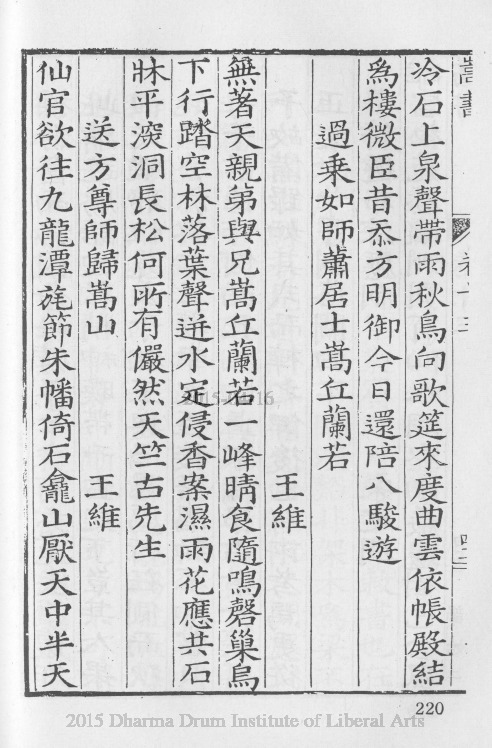 嵩書
卷十三
冷石上泉聲帶雨秋鳥向歌筵來度曲雲依帳殿結
為樓微臣昔忝方明御今日還陪八駿遊
過乗如師蕭居士嵩丘蘭若
王維
無著天親弟與兄嵩丘蘭若一峰晴食隨鳴磬巢烏
下行踏空林落葉聲迸水定侵香案濕雨花應共石
牀平深洞長松何所有儼然天竺古先生
送方尊師歸嵩山
王維
仙官欲往九龍潭旄節朱幡倚石龕山厭天中半天
220
2015 Dharma Drum Institute of Liberal Arts